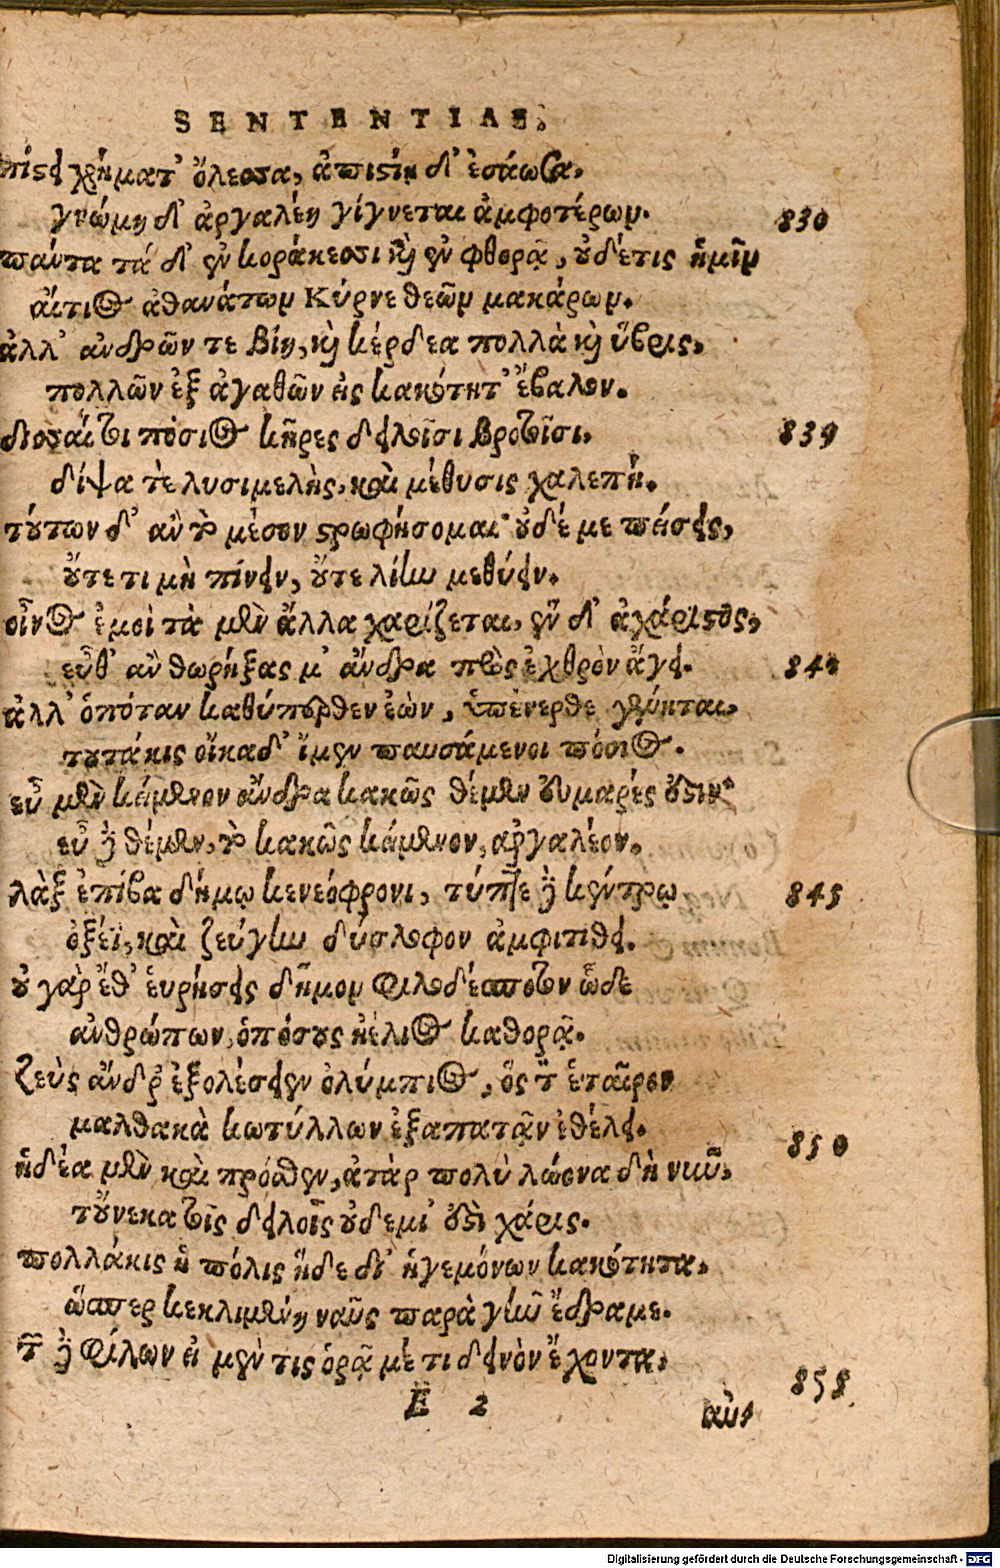 SENTENTIAE.
πίςει χρήματ' ὄλεσσα, ἀπιςίη δ' ἐσάωσα.
γνώμη δ' ἀργαλέη γίγνεται ἀμφοτέρων. 830
πάντα τά δ' ἐν κοράκεσσι καὶ ἐν φθορᾷ, οὐδέτις ἡμῖν
αἴτιος ἀθανάτων Κύρνε θεῶν μακάρων.
ἀλλ' ἀνδρῶν τε βίη, καὶ κέρδεα πολλὰ καὶ ὕβρις,
πολλῶν ἐξ ἀγαθῶν εἰς κακότητ' ἔβαλον.
δισσαί τοι πόσιος κῆρες δειλοῖσι βροτοῖσι, 839
δίψα τὲ λυσιμελὴς, καὶ μέθυσις χαλεπή.
τούτων δ' ἂν τὸ μέσον ςρωφήσομαι· οὐδέ με πείσεις,
οὔτε τι μὴ πίνειν, οὔτε λίην μεθύειν.
οἶνος ἐμοὶ τὰ μὲν ἄλλα χαρίζεται, ἓν δ' ἀχάριςος,
εὖθ' ἂν θωρήξας μ' ἄνδρα πρὸς ἐχθρὸν ἄγει. 840
ἀλλ' ὁπόταν καθύπερθεν ἐὼν, ὑπένερθε γένηται,
τουτάκις οἴκαδ' ἴμεν παυσάμενοι πόσιος.
εὖ μὲν κείμενον ἄνδρα κακῶς θέμεν εὐμαρές ἐςιν·
εὖ δὲ θέμεν, τὸ κακῶς κείμενον, ἀργαλέον.
λὰξ ἐπίβα δήμῳ κενεόφρονι, τύπτε δὲ κέντρῳ 845
ὀξέϊ, καὶ ζεύγλην δύσλοφον ἀμφιτίθει.
οὐ γὰρ ἔθ' εὑρήσεις δῆμον φιλοδέσποτον ὧδε
ἀνθρώπων, ὁπόσους ἠέλιος καθορᾷ.
Ζεὺς ἄνδρ' ἐξολέσειεν ὀλύμπιος, ὃς τὸν ἑταῖρον
μαλθακὰ κωτύλλων ἐξαπατᾷν ἐθέλει. 850
ἤδέα μὲν καὶ πρόσθεν, ἀτὰρ πολὺ λώονα δὴ νιῦ,
τοὔνεκα τοῖς δειλοῖς οὐδεμί' ἐςὶ χάρις.
πολλάκις ἡ πόλις ἥδε δι' ἡγεμόνων κακότητα,
ὥσπερ κεκλιμένη ναῦς παρὰ γῆν ἔδραμε.
τῶν δὲ φίλων εἰ μέν τις ὁρᾷ μέ τι δεινὸν ἔχοντα, 858
E 2
αὐχ
Digitalisierung gefördert durch die Deutsche Forschungsgemeinschaft - DFG